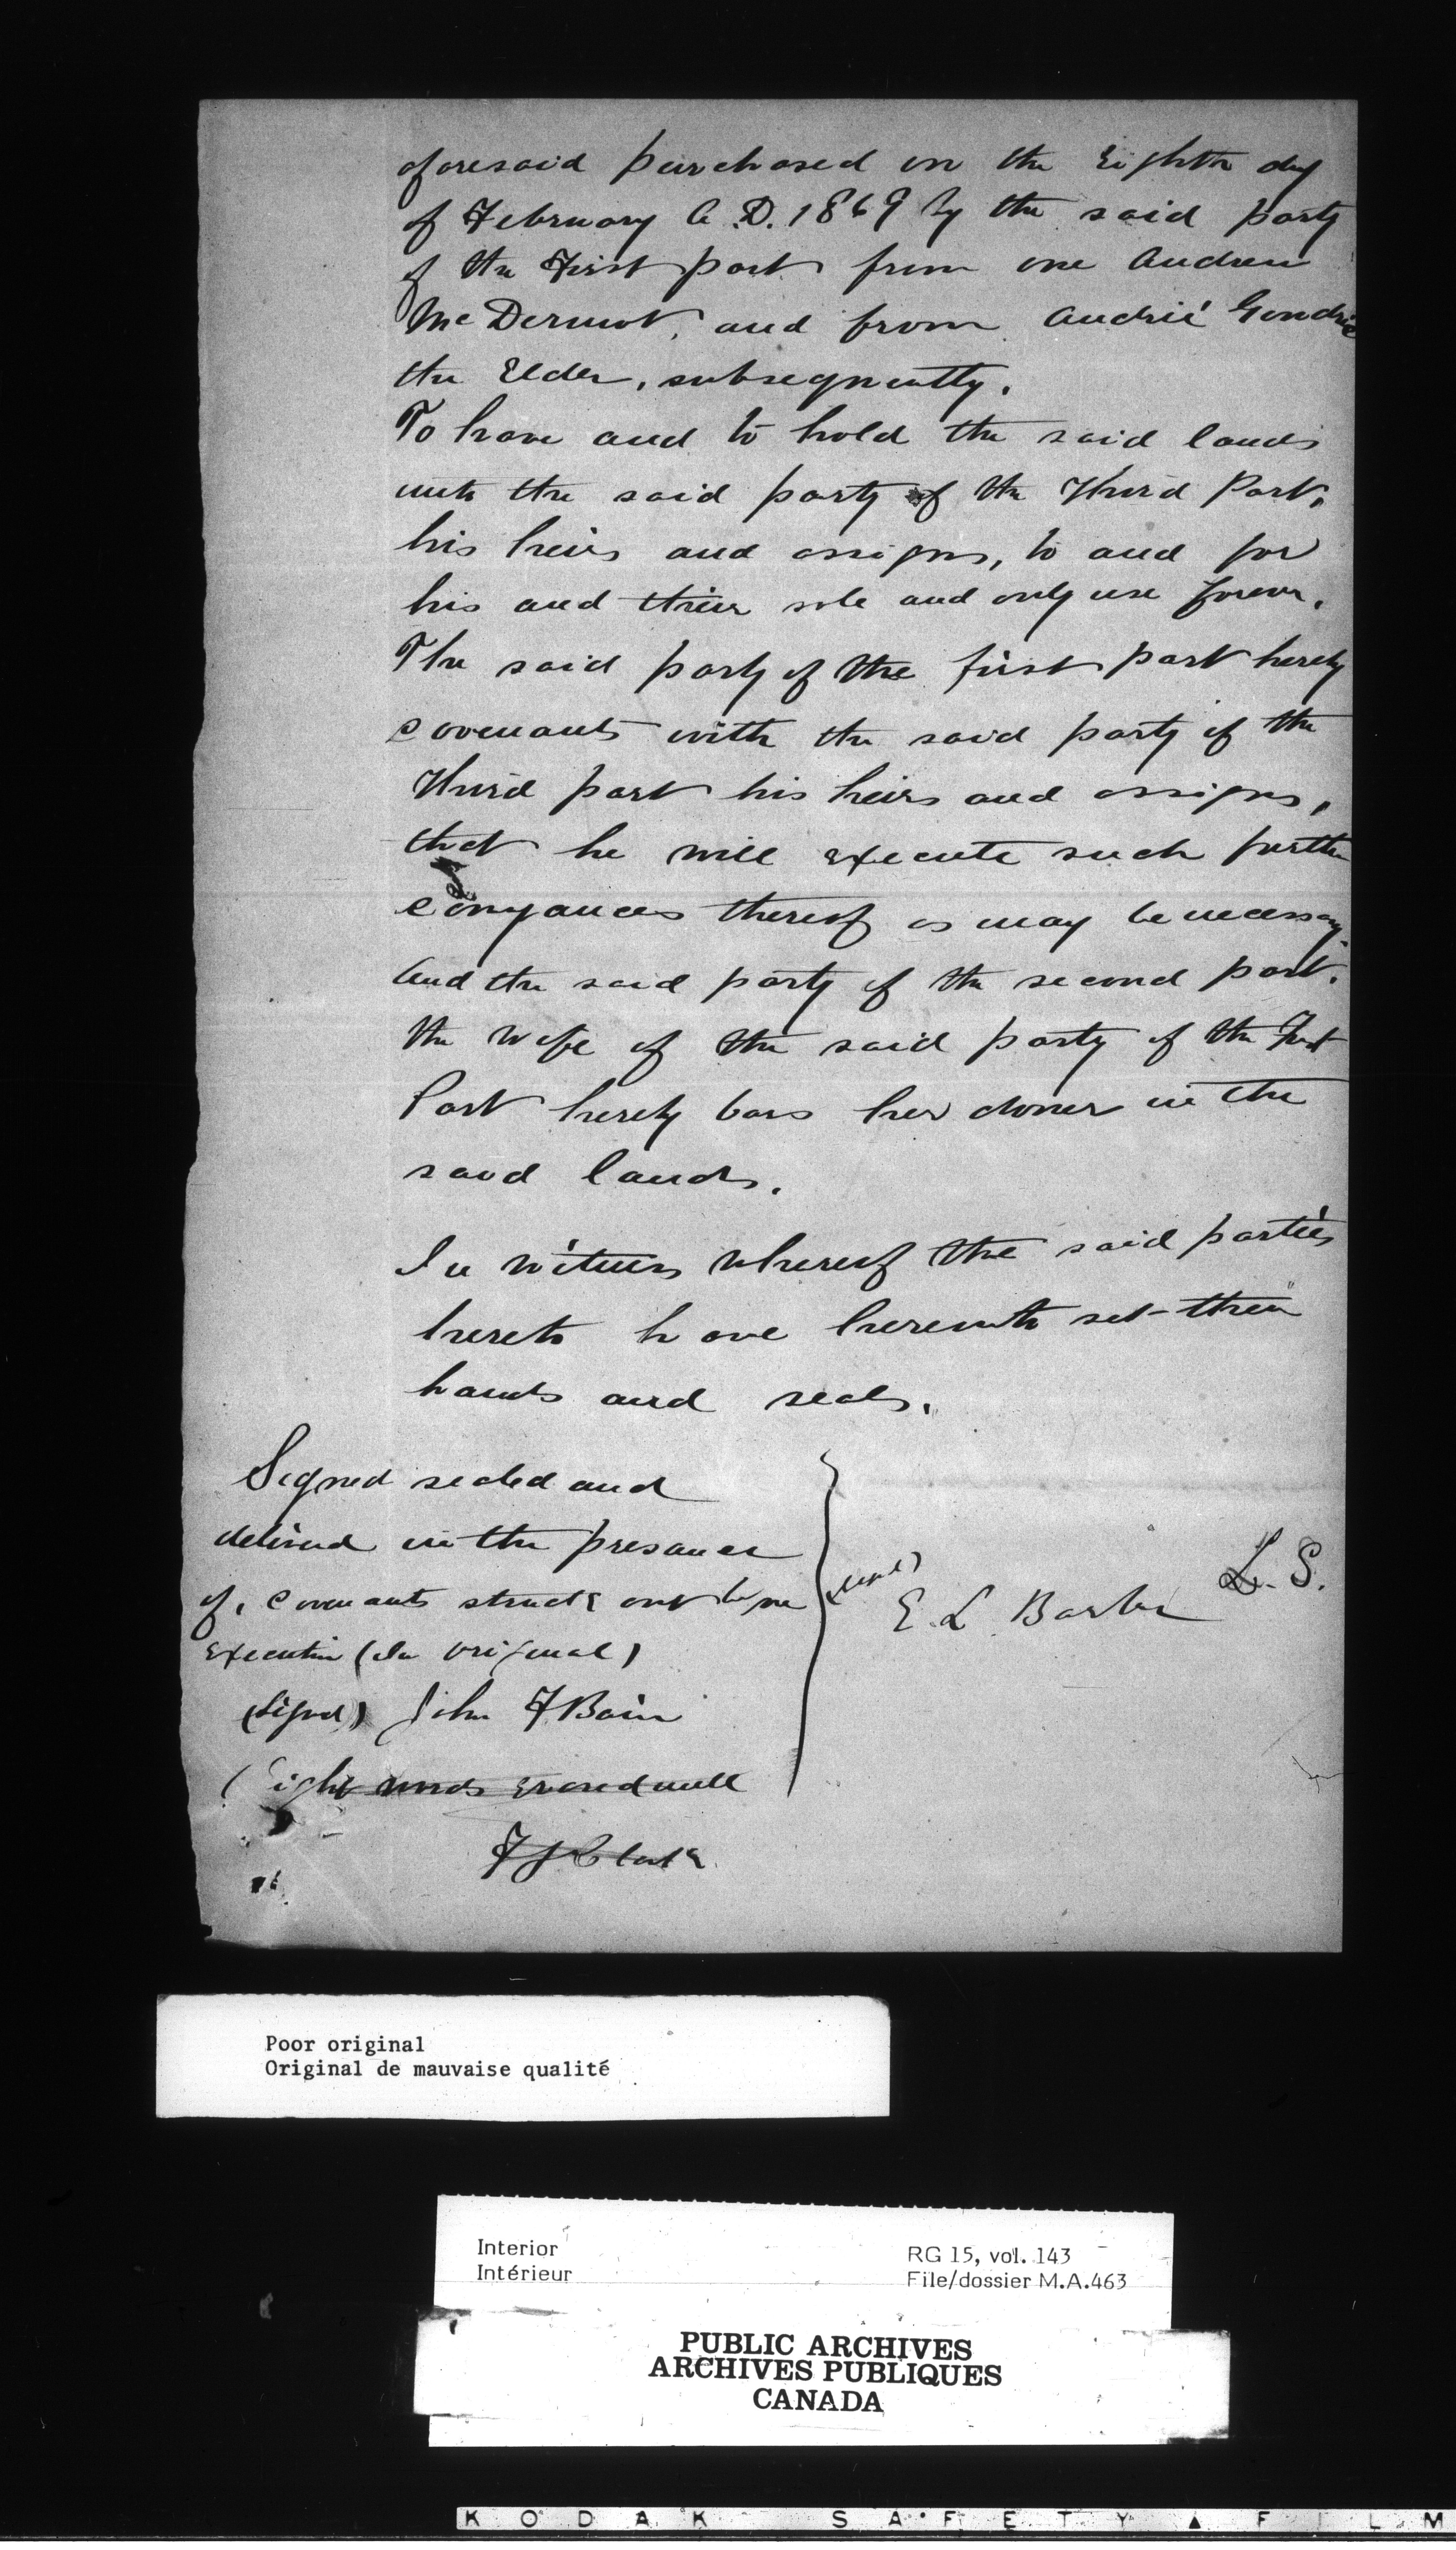 aforesaid purchased on the Eighth day
of February A.D. 1869 by the said party
of the First part from one Andrew
McDermot, and from Andrié Gendrie
the Elder, subsequently.
To have and to hold the said lands
unto the said party of the Third Part,
his heirs and assigns, to and for
his and their sole and only use forever.
The said party of the first part hereby
covenants with the said party of the
Third part his heirs and assigns,
that he will execute such further
conveyances thereof as may be necessary.
And the said party of the second part,
the wife of the said party of the First
Part hereby bars her dower in the
said lands.
In witness whereof the said parties
hereto have hereunto set their
hands and seals.
Signed sealed and
delivered in the presance
of, covenants struck out before
execution (In original)
(Signed) John F Bain
(Eight words erased
F J Clark
(signed)
E. L Barber L. S.
Poor original
Original de mauvaise qualité
Interior
Intérieur
RG 15, vol. 143
File/dossier M.A.463
PUBLIC ARCHIVES
ARCHIVES PUBLIQUES
CANADA
KODAK SAFETY ▲ FILM